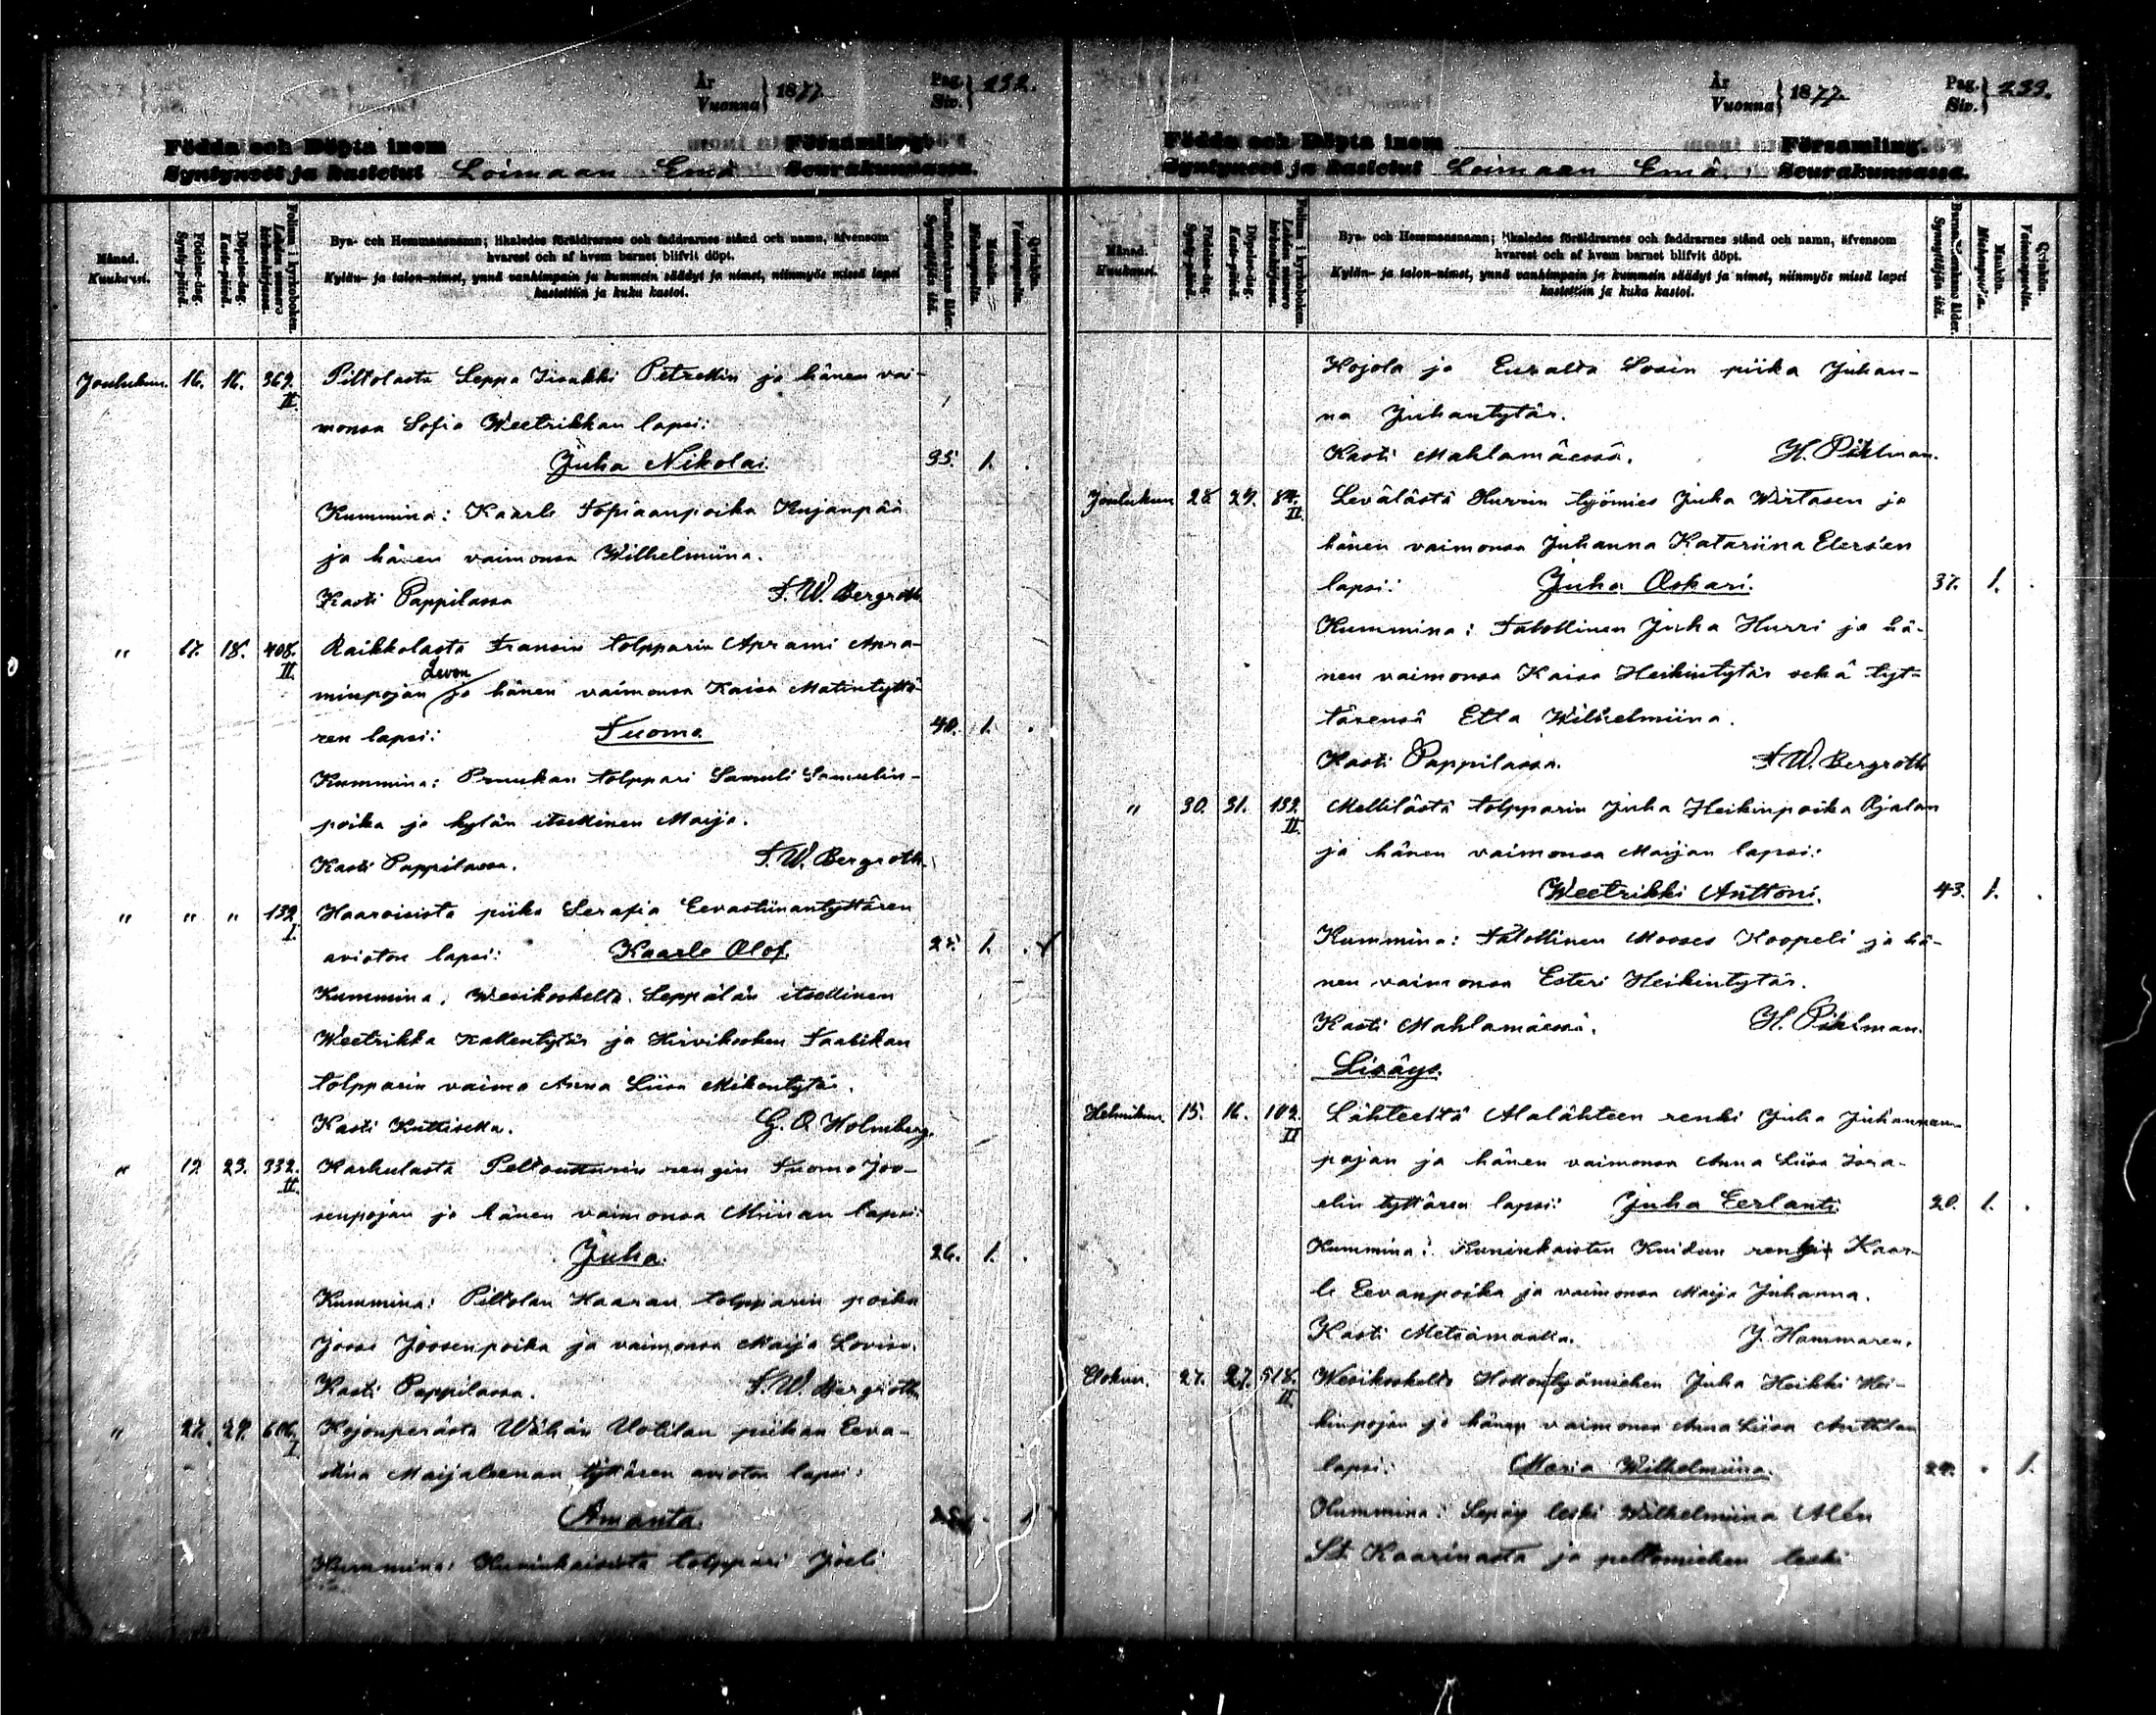 År
Vuonna } 1877
Pag.
Siv. } 232.
Födda och Döpta inom Församling.
Syntyneet ja kastetut Loimaan Emä Seurakunnassa.
Månad.
Kuukausi.
Födelse-dag.
Synty-päivä.
Döpelse-dag.
Kaste-päivä.
Folium i kyrkoboken.
Lehden numero kirkonkirjassa.
Bya- och Hemmansnamn; likaledes föräldrarnes och faddrarnes stånd och namn, äfvensom
hvarest och af hvem barnet blifvit döpt.
Kylän- ja talon-nimet, ynnä vanhimpain ja kummein säädyt ja nimet, niinmyös missä lapsi
kastettiin ja kuka kastoi.
Barnaföderskans ålder.
Synnyttäjän ikä.
Mankön.
Miehenpuolia.
Qvinkön.
Vaimonpuolia.
Joulukun. 16. 16. 369. II. Piltolasta Seppa Iisakki Petrellin ja hänen vai-
monsa Sofia Weetrikkan lapsi:
Juha Nikolai. 35. 1. .
Kummina: Kaarle Topiaanpoika Kujanpää
ja hänen vaimonsa Wilhelmiina.
Kasti Pappilassa F. W. Bergroth
" 17. 18. 408. II. Raikkolasta Fransin tolpparin Aprami Apra-
Levon
minpojan ja hänen vaimonsa Kaisa Matintyttä-
ren lapsi: Tuomo 40. 1. .
Kummina: Pruukan tolppari Samuli Samulin-
poika ja kylän itsellinen Maija.
Kasti Pappilassa. F. W. Bergroth.
" " " 132 I. Haaroisista piika Serafia Eevastiinantyttären
avioton lapsi: Kaarle Olof. 25. 1. .
Kummina, Wesikoskelta Seppälän itsellinen
Weetrikka Kallentytär ja Hirvikosken Faabikan
tolpparin vaimo Anna Liisa Mikontytär.
Kasti Kuttisella. G. O Holmberg.
" 19. 23. 332. II. Karhulasta Peltouuturin rengin Tuomo Joo-
senpojan ja hänen vaimonsa Miinan lapsi:
Juha. 26. 1. .
Kummina: Piltolan Haaran tolpparin poika
Joose Joosenpoika ja vaimonsa Maija Lovisa.
Kasti Pappilassa. F. W. Bergroth
" 27. 29. 606. I. Kojonperästä Wähän Uotilan piikan Eeva-
stina Maijaleenan tyttären avioton lapsi:
Amanta. . 1
Kummina: Kuninkaisista tolppari Joeli
År
Vuonna } 1877.
Pag.
Siv. } 233.
Födda och Döpta inom Församling.
Syntyneet ja kastetut Loimaan Emä. Seurakunnassa.
Månad.
Kuukausi.
Födelse-dag.
Synty-päivä.
Döpelse-dag.
Kaste-päivä.
Folium i kyrkoboken.
Lehden numero kirkonkirjassa.
Bya- och Hemmansnamn; likaledes föräldrarnes och faddrarnes stånd och namn, äfvensom
hvarest och af hvem barnet blifvit döpt.
Kylän- ja talon-nimet, ynnä vanhimpain ja kummein säädyt ja nimet, niinmyös missä lapsi
kastettiin ja kuka kastoi.
Barnaföderskans ålder.
Synnyttäjän ikä.
Mankön.
Miehenpuolia.
Qvinkön.
Vaimonpuolia.
Kojola ja Euralta Sosin piika Juhan-
na Juhantytär.
Kasti Mahlamäessä. H. Pihlman.
Joulukun 28 29. 84. II. Levälästä Hurrin työmies Juha Wirtasen ja
hänen vaimonsa Juhanna Katariina Elersen
lapsi: Juho Oskari. 37. 1. .
Kummina: Talollinen Juha Hurri ja hä-
nen vaimonsa Kaisa Heikintytär sekä tyt-
tärensä Etla Wilhelmiina.
Kasti Pappilassa. F. W. Bergroth
" 30. 31. 132. II. Mellilästä tolpparin Juha Heikinpoika Ojalan
ja hänen vaimonsa Maijan lapsi:
Weetrikki Anttoni. 43. 1. .
Kummina: Talollinen Mooses Koopeli ja hä-
nen vaimonsa Esteri Heikintytär.
Kasti Mahlamäessä. H. Pihlman.
Lisäys.
Helmikun. 15. 16. 102. II Lähteeltä Alalähteen renki Juha Juhannan-
pojan ja hänen vaimonsa Anna Liisa Isra-
elin tyttären lapsi: Juha Eerlanti 20. 1. .
Kummina: Kuninkaisten Knidun renki Kaar-
le Eevanpoika ja vaimonsa Maija Juhanna.
Kasti Metsämaalla. J. Hammaren.
Elokun. 27. 27. 518. II. Wesikoskelta työmiehen Juha Heikki Hei-
kinpojan ja hänen vaimonsa Anna Liisa Anttilan
lapsi: Maria Wilhelmiina. . 1.
Kummina: Sepän leski Wilhelmiina Alén
St. Kaarinasta ja peltomiehen leski